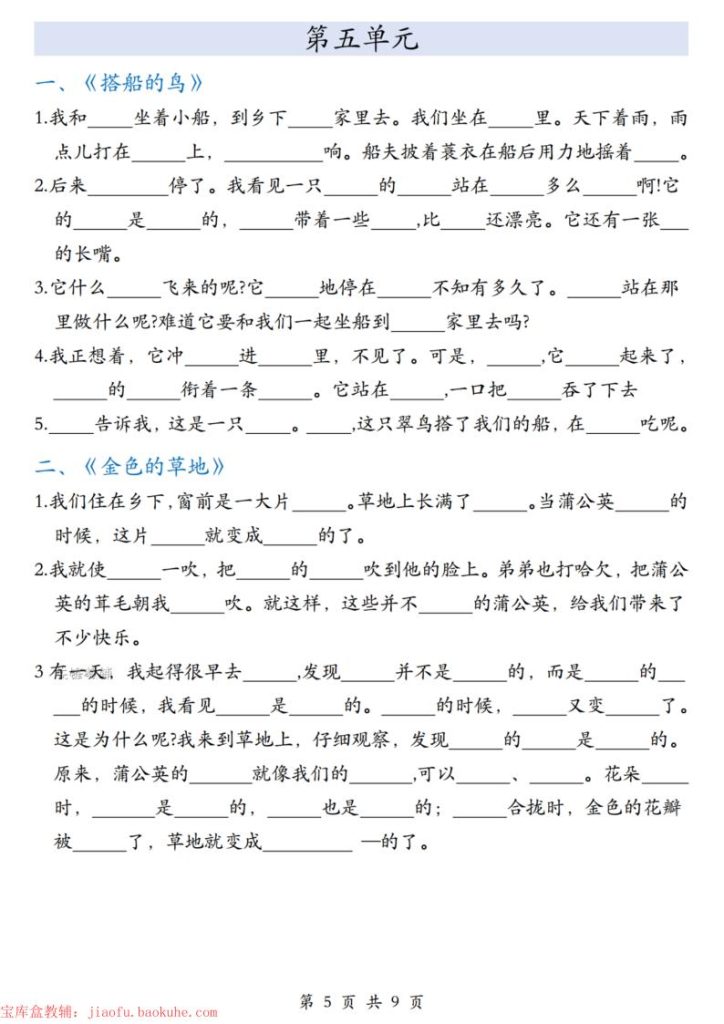 第五单元
一、《搭船的鸟》
1.我和_____坐着小船，到乡下_____家里去。我们坐在_____里。天下着雨，雨
点儿打在______上，___________响。船夫披着蓑衣在船后用力地摇着_____。
2.后来_________停了。我看见一只______的______站在______多么______啊!它
的_____是______的，______带着一些_____,比_____还漂亮。它还有一张___
的长嘴。
3.它什么______飞来的呢?它______地停在______不知有多久了。______站在那
里做什么呢?难道它要和我们一起坐船到______家里去吗?
4.我正想着，它冲______进______里，不见了。可是，______,它______起来了，
______的______衔着一条______。它站在______,一口把______吞了下去
5._____告诉我，这是一只_____。_____,这只翠鸟搭了我们的船，在______吃呢。
二、《金色的草地》
1.我们住在乡下,窗前是一大片______。草地上长满了______。当蒲公英______的
时候，这片______就变成______的了。
2.我就使______一吹，把______的______吹到他的脸上。弟弟也打哈欠，把蒲公
英的茸毛朝我______吹。就这样，这些并不______的蒲公英，给我们带来了
不少快乐。
3 有一天，我起得很早去______,发现______并不是______的，而是______的___
___的时候，我看见______是______的。______的时候，______又变______了。
这是为什么呢?我来到草地上，仔细观察，发现______的______是______的。
原来，蒲公英的_______就像我们的_______,可以______、______。花朵_____
时，_______是______的，______也是______的；______合拢时，金色的花瓣
被______了，草地就变成__________ —的了。
第 5 页 共 9 页
宝库盒教辅：jiaofu.baokuhe.com